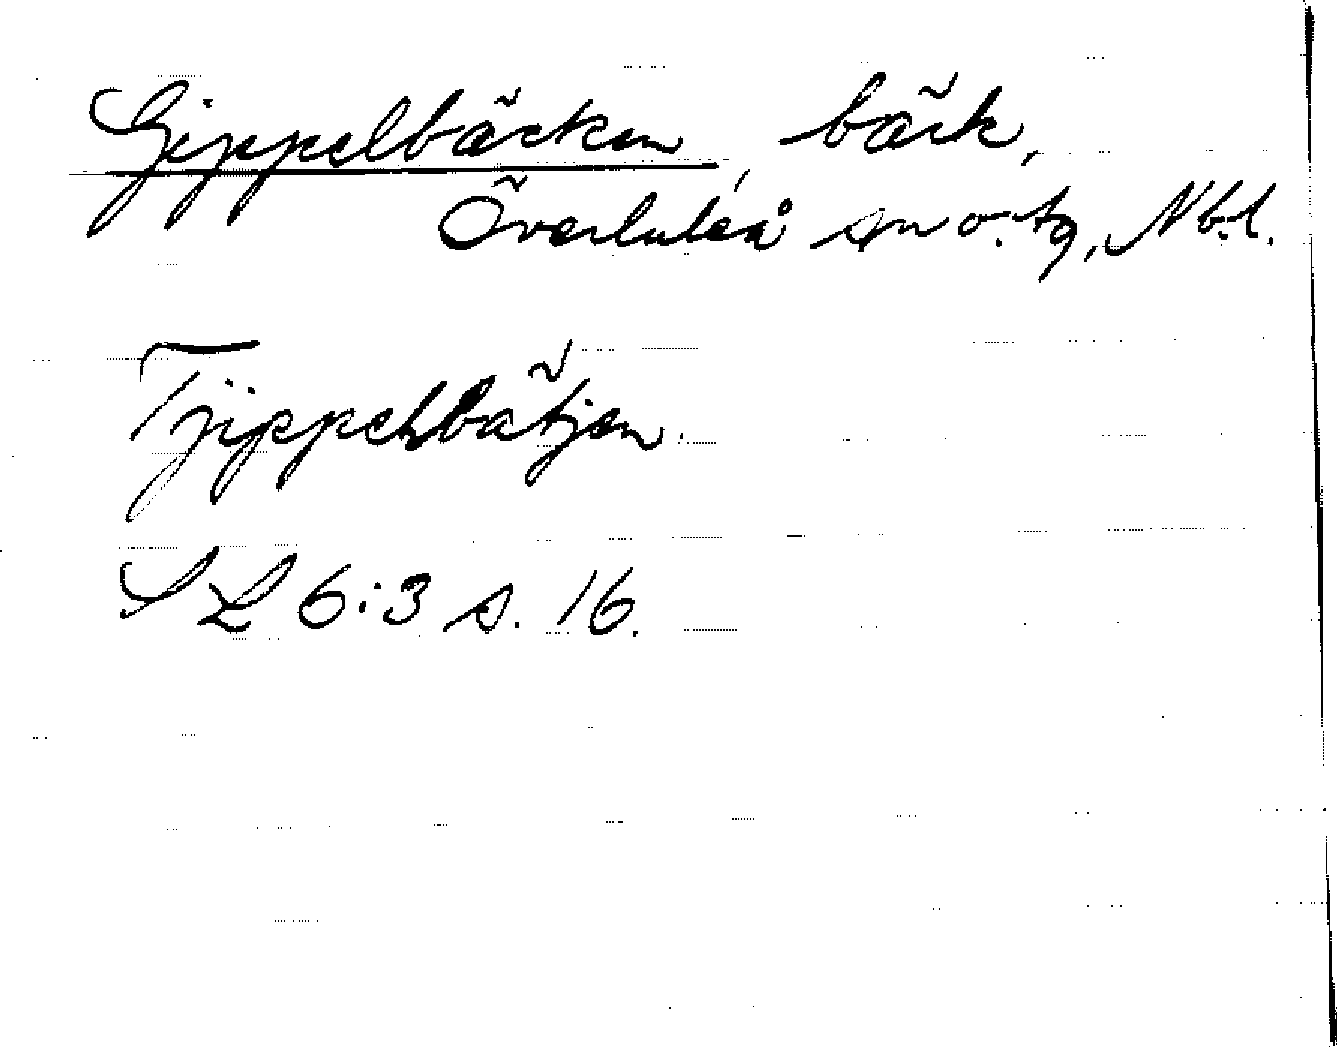 Gippelbäcken, bäck,
Överluleå sn o. tg, Nb.l.
Tjippelbätjen.
SL 6:3 s. 16.